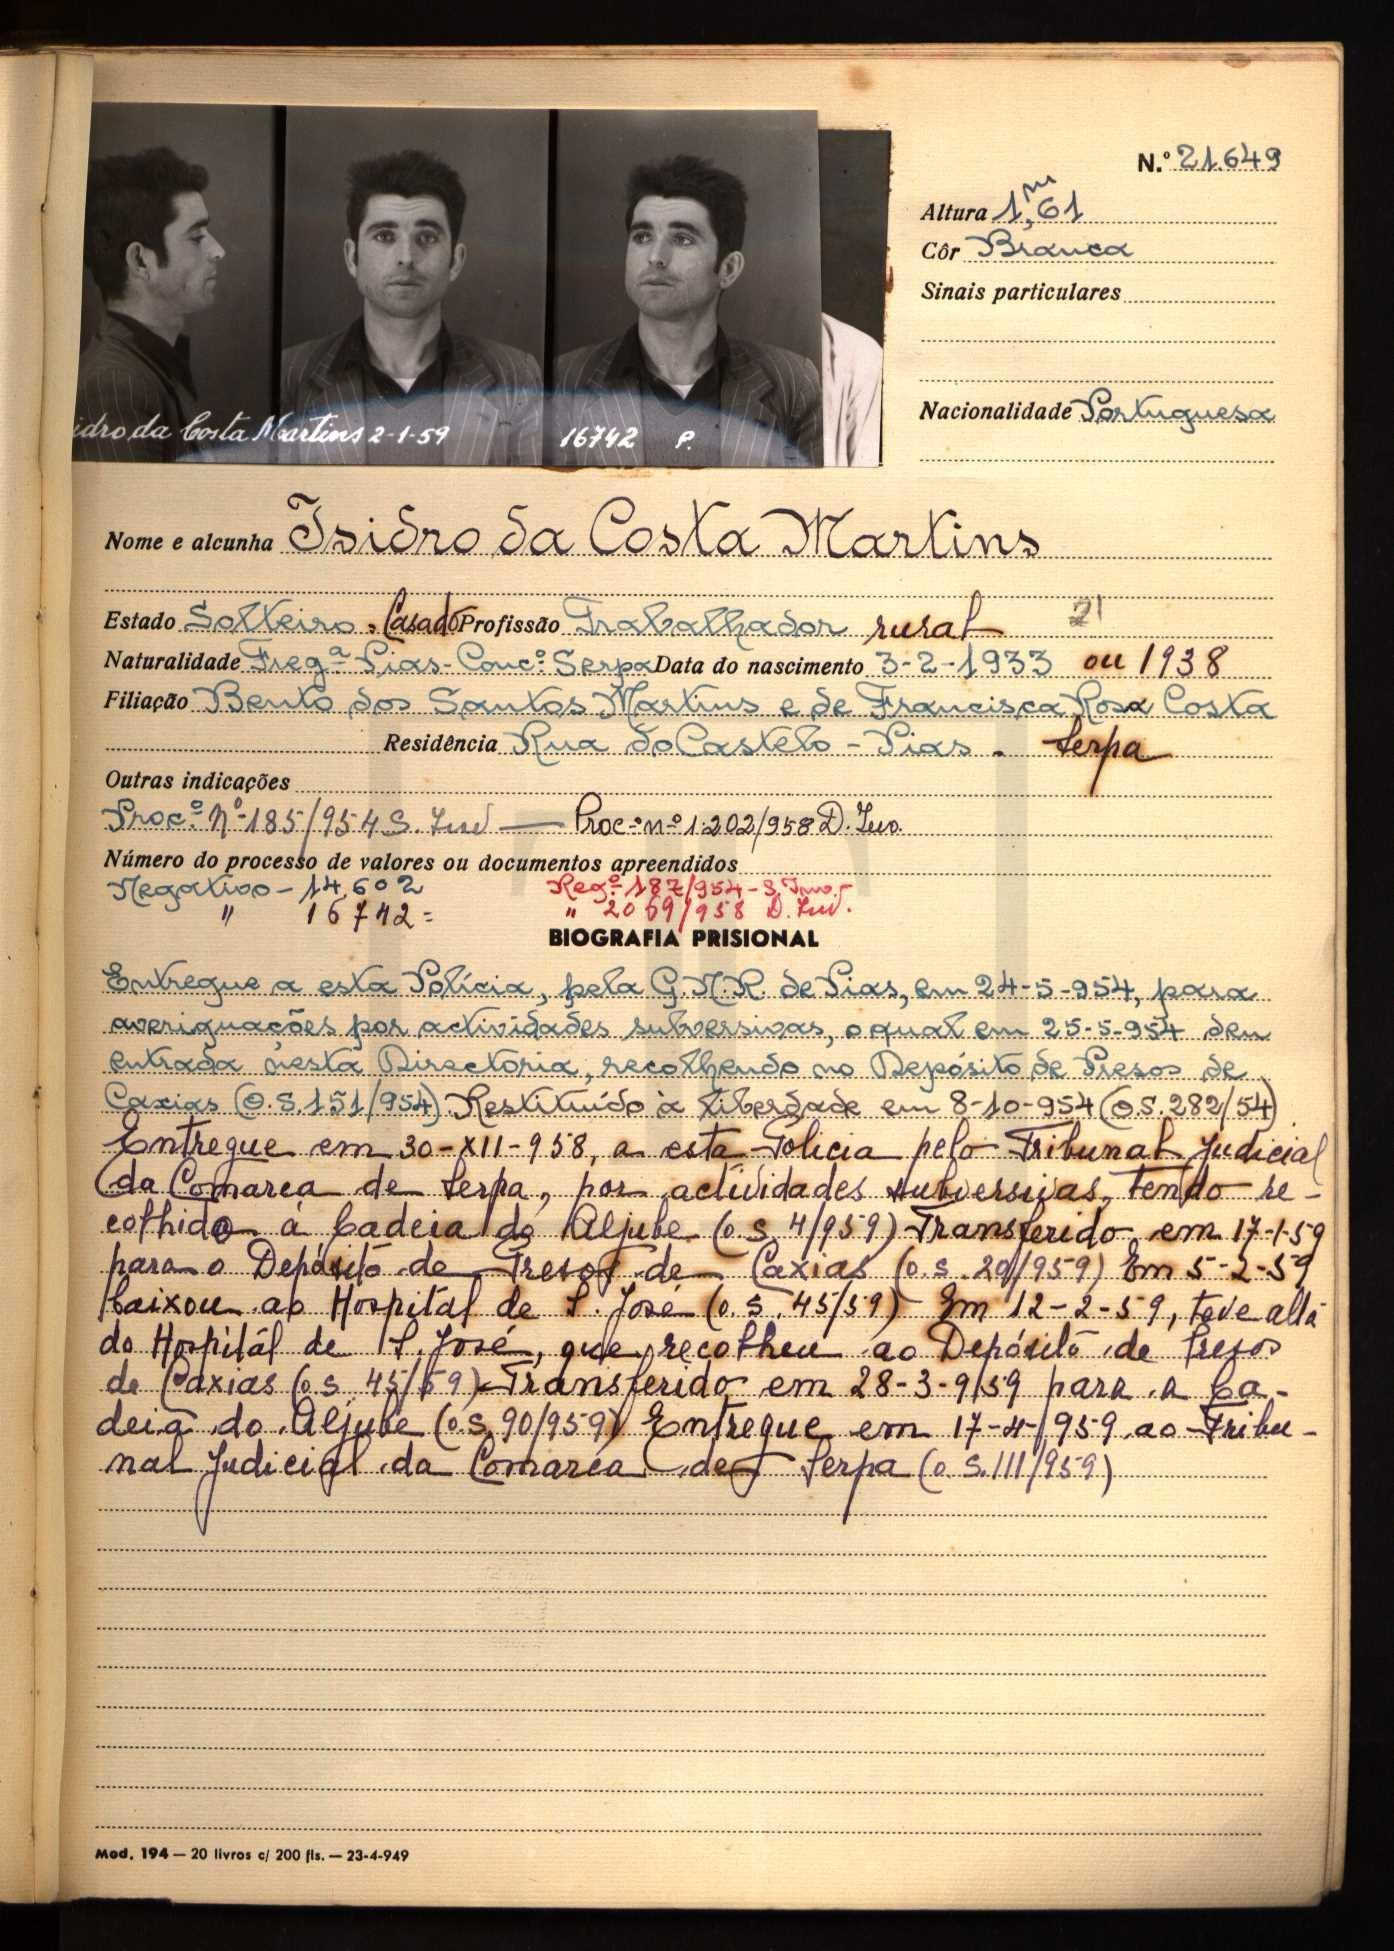 N.º 21.649
Altura 1,m61
Côr Branca
Sinais particulares
Nacionalidade Portuguesa
idro da Costa Martins 2-1-59
16742 P.
Nome e alcunha Isidro da Costa Martins
Estado Solteiro, Casado Profissão Trabalhador rural 21
Naturalidade Freg.ª Pias-Conc.º Serpa Data do nascimento 3-2-1933 ou 1938
Filiação Bento dos Santos Martins e de Francisca Rosa Costa
Residência Rua do Castelo - Pias. Serpa
Outras indicações
Proc.º Nº 185/954 S. Inv — Proc.º nº 1.202/958 D. Inv.
Número do processo de valores ou documentos apreendidos
Negativo - 14.602 Reg.º 187/954 - S. Inv.
" 16742= " 2069/958 D. Inv.
BIOGRAFIA PRISIONAL
Entregue a esta Polícia, pela G.N.R. de Pias, em 24-5-954, para
averiguações por actividades subversivas, o qual em 25-5-954 deu
entrada nesta Directoria, recolhendo ao Depósito de Presos de
Caxias (O.S.151/954) Restituído à liberdade em 8-10-954 (O.S.282/54)
Entregue em 30-XII-958, a esta Policia pelo Tribunal Judicial
da Comarca de Serpa, por actividades subversivas, tendo re-
colhido à Cadeia do Aljube (o.s. 4/959) Transferido em 17-1-59
para o Depósito de Presos de Caxias (o.s. 20/959) Em 5-2-59
baixou ao Hospital de S. José (o.s. 45/59) Em 12-2-59, teve alta
do Hospitál de S. José, que recolheu ao Depósito de Presos
de Caxias (o s 45/59) Transferido em 28-3-959 para a Ca-
deia do Aljube (o.s. 90/959) Entregue em 17-4-959 ao Tribu-
nal Judicial da Comarca de Serpa (o S.111/959)
Mod. 194 — 20 livros c/ 200 fls. — 23-4-949